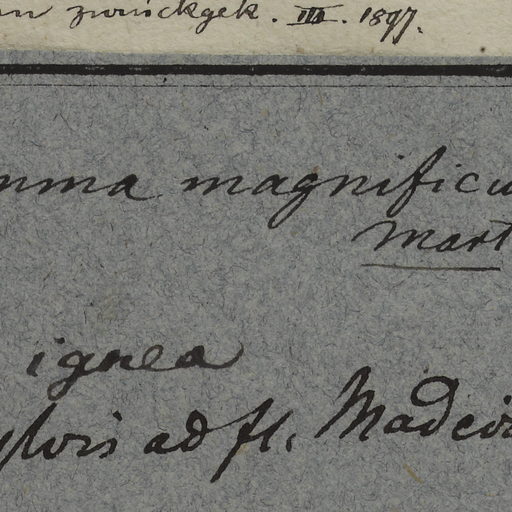 zurückgek. III. 1897.
mma magnificu
Mart
ignea
ylvis ad fl. Madeir